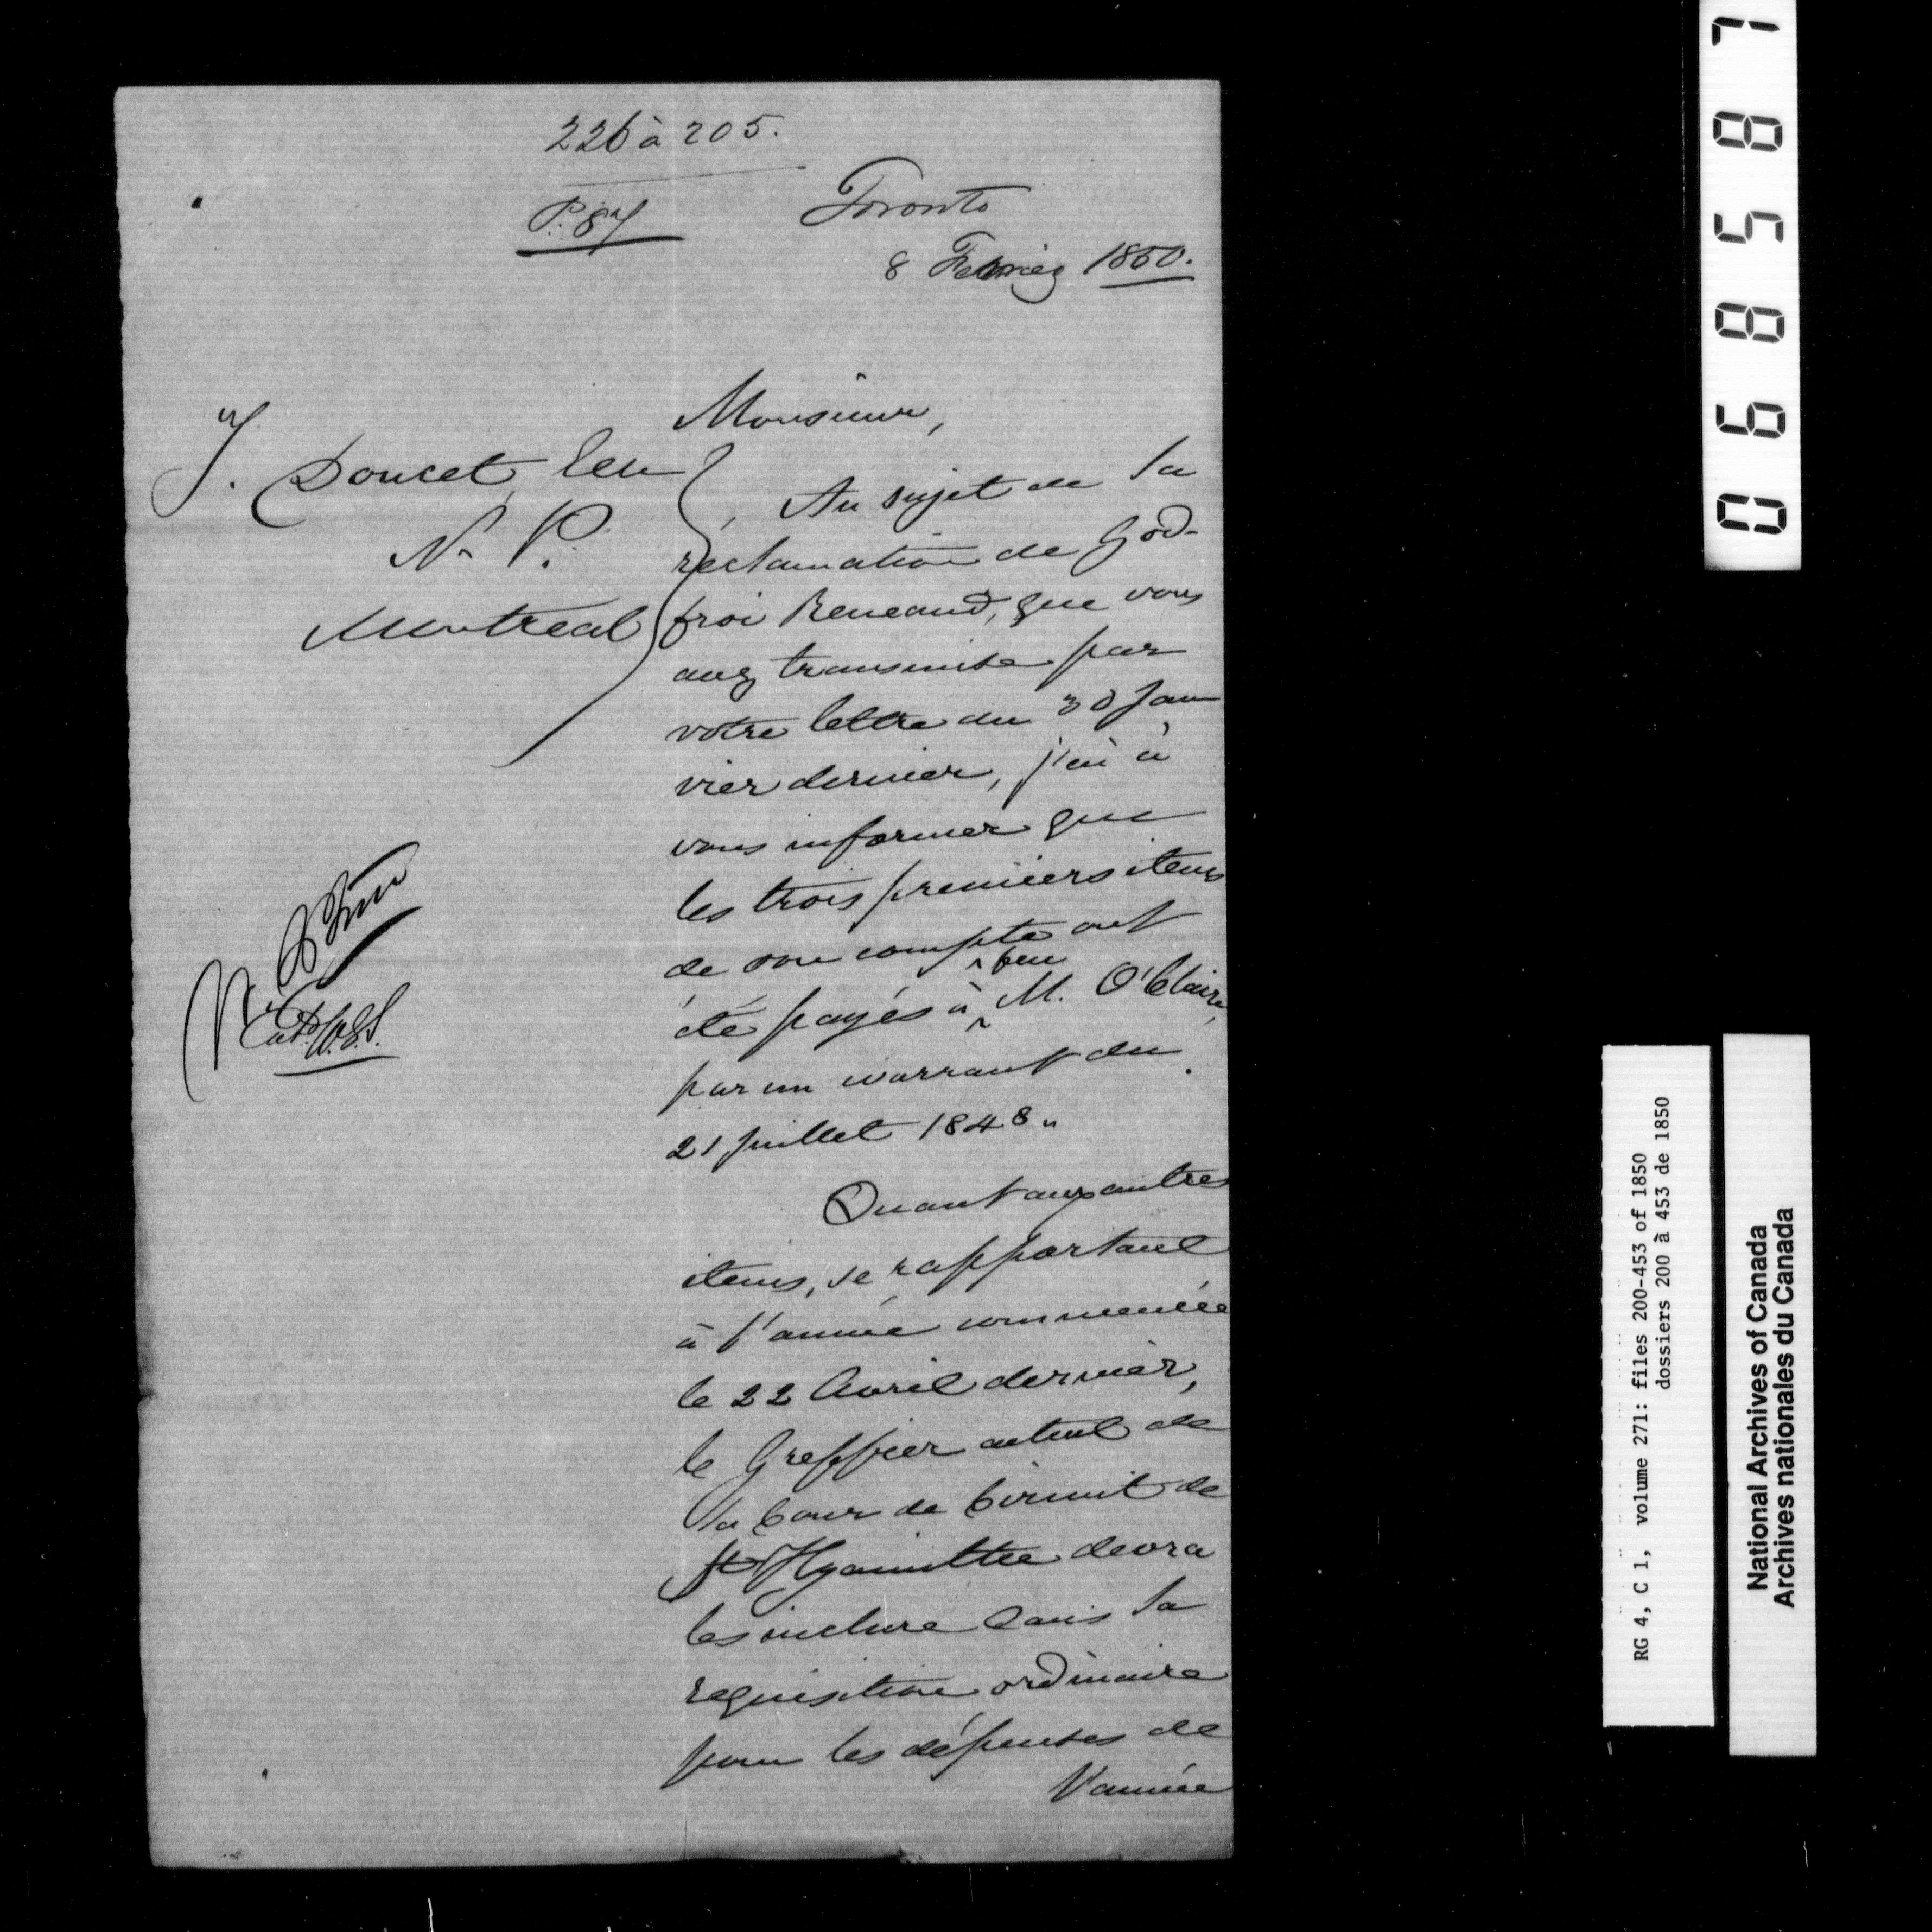 226 à 205.
P. 87
Toronto
8 Fevrier 1850.
J. Doucet, Ecu
N. P.
Montreal
Monsieur,
Au sujet de la
reclamation de God-
froi Reneaud, que vous
avez transmise par
votre lettre du 30 Jan
vier dernier, j'ai à
vous informer que
les trois premiers items
de son compte ont
été payés à feu M. O'Clair,
par un warrant du
21 Juillet 1848.
Quant aux autres
items, se rapportant
à l'année commencée
le 22 Avril dernier,
le Greffier actuel de
la Cour de Circuit de
St Hyacinthe devra
les inclure dans la
requisition ordinaire
pour les dépenses de
l'année
068587
RG 4, C 1, volume 271: files 200-453 of 1850
dossiers 200 à 453 de 1850
National Archives of Canada
Archives nationales du Canada